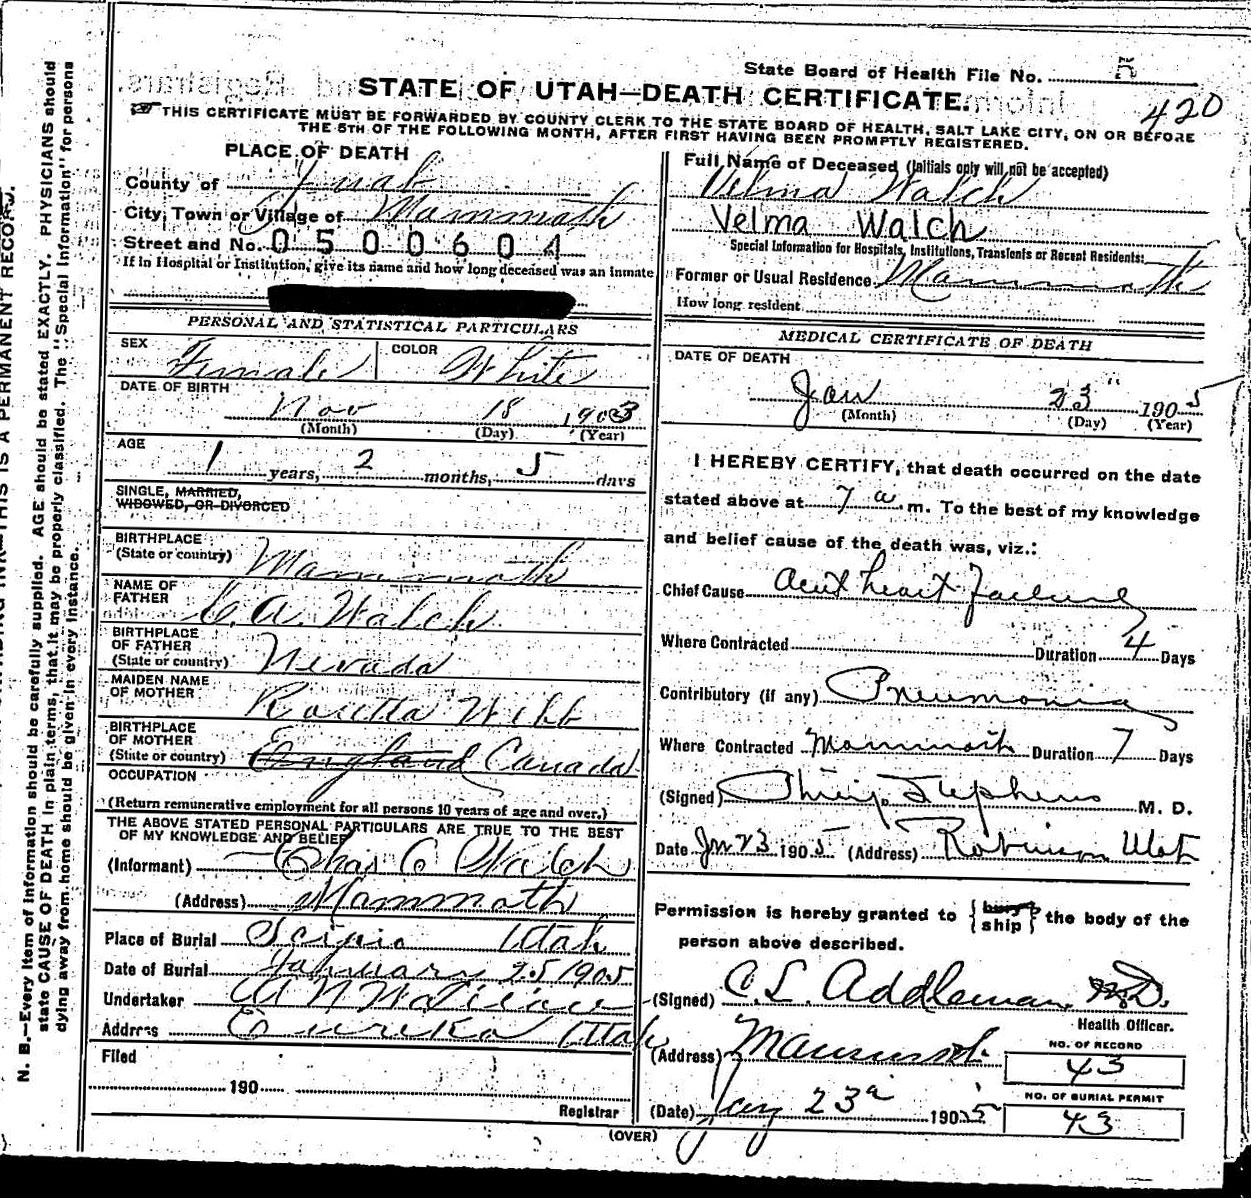 State Board of Health File No. 5
STATE OF UTAH—DEATH CERTIFICATE.
420
THIS CERTIFICATE MUST BE FORWARDED BY COUNTY CLERK TO THE STATE BOARD OF HEALTH, SALT LAKE CITY, ON OR BEFORE
THE 5TH OF THE FOLLOWING MONTH, AFTER FIRST HAVING BEEN PROMPTLY REGISTERED.
N. B.—Every item of information should be carefully supplied. AGE should be stated EXACTLY. PHYSICIANS should
state CAUSE OF DEATH in plain terms, that it may be properly classified. The "Special Information" for persons
dying away from home should be given in every instance.
THIS IS A PERMANENT RECORD.
PLACE OF DEATH
County of Juab
City, Town or Village of Mammoth
Street and No. 0500604
If in Hospital or Institution, give its name and how long deceased was an inmate
PERSONAL AND STATISTICAL PARTICULARS
SEX Female COLOR White
DATE OF BIRTH
Nov 18 1903
(Month) (Day) (Year)
AGE
1 years, 2 months, 5 days
SINGLE, MARRIED,
WIDOWED, OR DIVORCED
BIRTHPLACE
(State or country) Mammoth
NAME OF
FATHER C. A. Walch
BIRTHPLACE
OF FATHER
(State or country) Nevada
MAIDEN NAME
OF MOTHER Rosetta Webb
BIRTHPLACE
OF MOTHER
(State or country) England Canada
OCCUPATION
(Return remunerative employment for all persons 10 years of age and over.)
THE ABOVE STATED PERSONAL PARTICULARS ARE TRUE TO THE BEST
OF MY KNOWLEDGE AND BELIEF
(Informant) Chas C Walch
(Address) Mammoth
Place of Burial Scipio Utah
Date of Burial January 25 1905
Undertaker
Address Eureka Utah
Filed
190
Registrar
Full Name of Deceased (Initials only will not be accepted)
Velma Walch
Velma Walch
Special Information for Hospitals, Institutions, Transients or Recent Residents:
Former or Usual Residence Mammoth
How long resident
MEDICAL CERTIFICATE OF DEATH
DATE OF DEATH
Jan 23" 1905
(Month) (Day) (Year)
I HEREBY CERTIFY, that death occurred on the date
stated above at 7 a m. To the best of my knowledge
and belief cause of the death was, viz.:
Chief Cause Acut heart Failure
Where Contracted Duration 4 Days
Contributory (if any) Pneumonia
Where Contracted Mammoth Duration 7 Days
(Signed) Stephens M. D.
Date Jan 23 1905 (Address) Robinson Utah
Permission is hereby granted to { bury ship } the body of the
person above described.
(Signed) C. L. Addleman, M.D.
Health Officer.
(Address) Mammoth
NO. OF RECORD
43
NO. OF BURIAL PERMIT
43
(Date) Jany 23d 1905
(OVER)